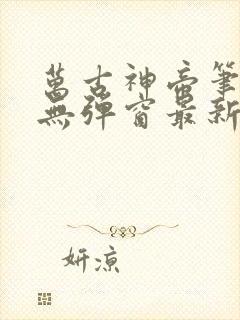 萬古神帝筆
無彈窗最新
妍凉